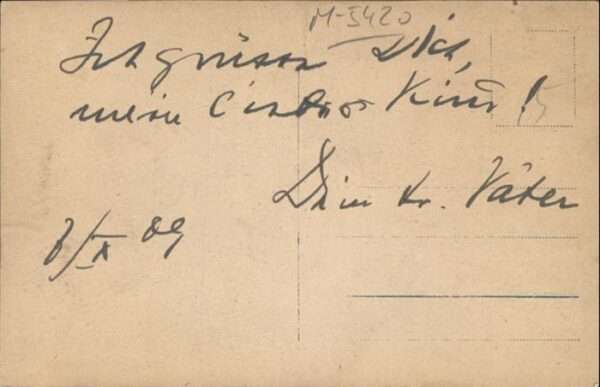 M-5420
Ich grüsse Dich,
mein liebes Kind!
5
Dein tr. Vater
8/IX 09